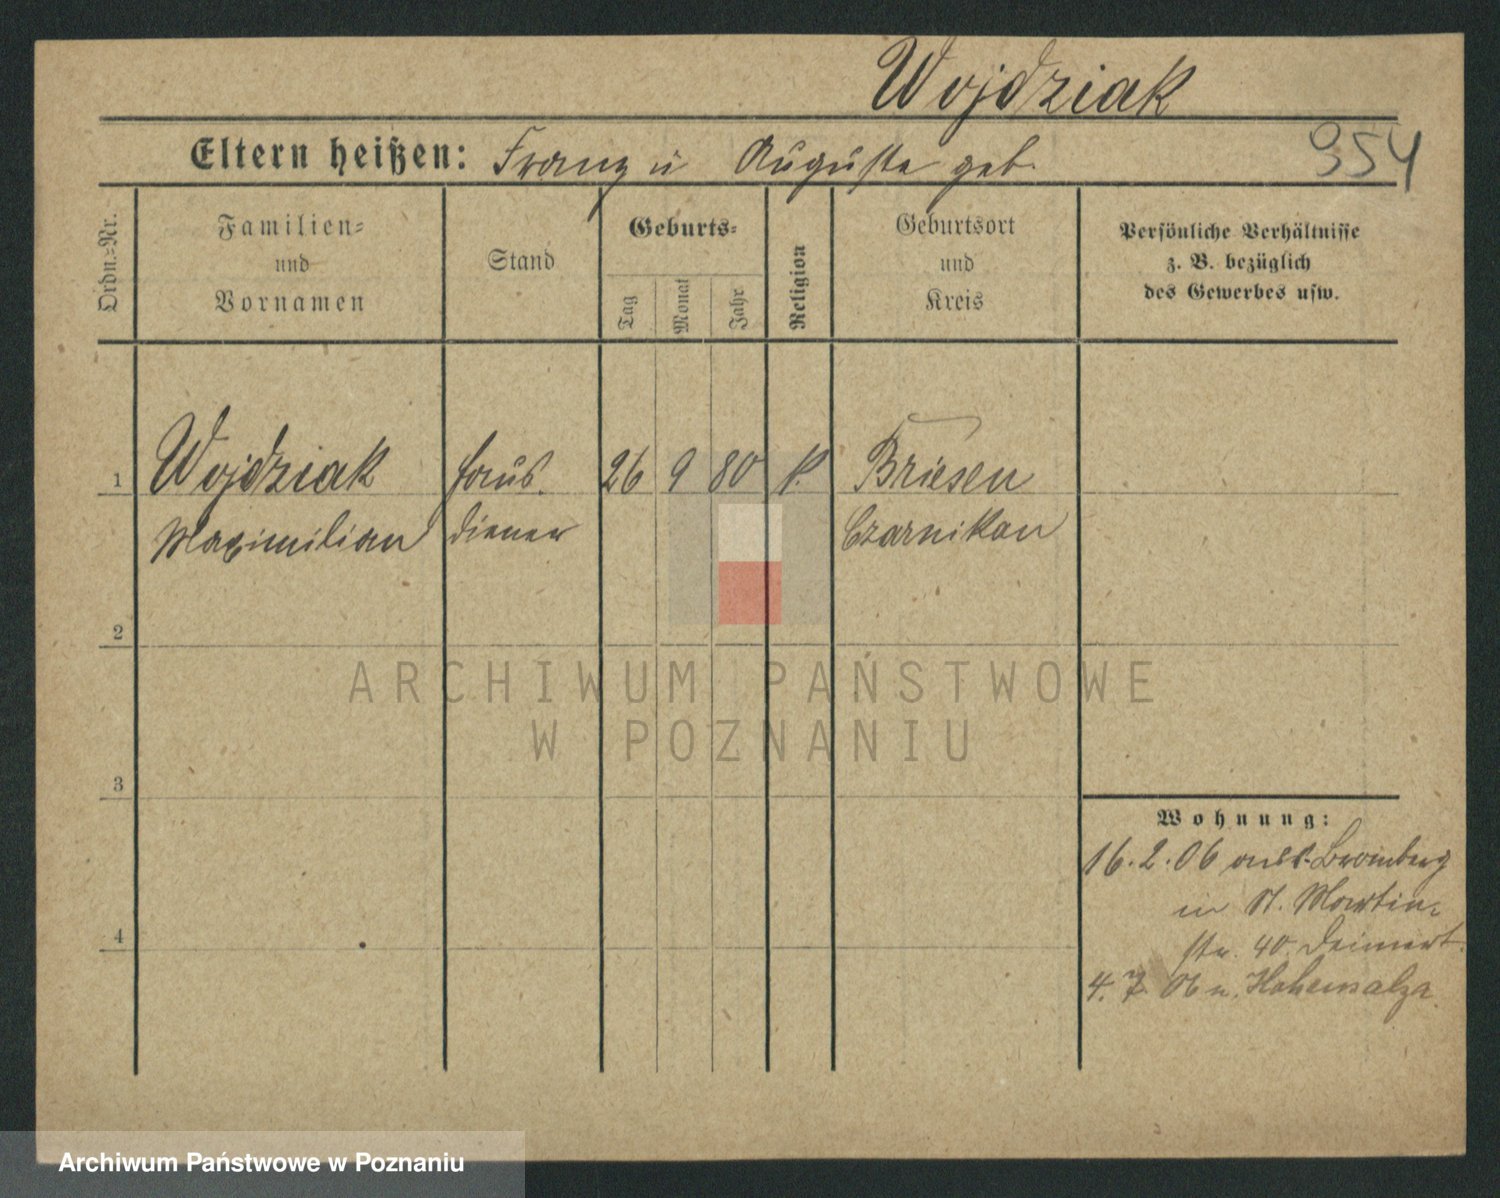 Wojdziak
Eltern heißen: Franz u Auguste geb.
354
Ordn.-Nr.
Familien-
und
Vornamen
Stand
Geburts-
Tag
Monat
Jahr
Religion
Geburtsort
und
Kreis
Persönliche Verhältnisse
z. B. bezüglich
des Gewerbes usw.
1 Wojdziak Haus- 26 9 80 k. Briesen
Maximilian diener Czarnikau
2
3
4
Wohnung:
16.2.06 aus Bromberg
in St. Martin-
str. 40. Deinert.
4. 7. 06 n. Hohensalza.
ARCHIWUM PAŃSTWOWE
W POZNANIU
Archiwum Państwowe w Poznaniu